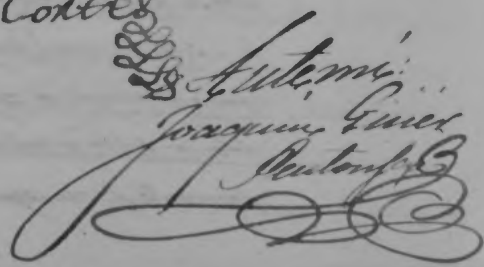 Cortés
Antemi
Joaquin Giner